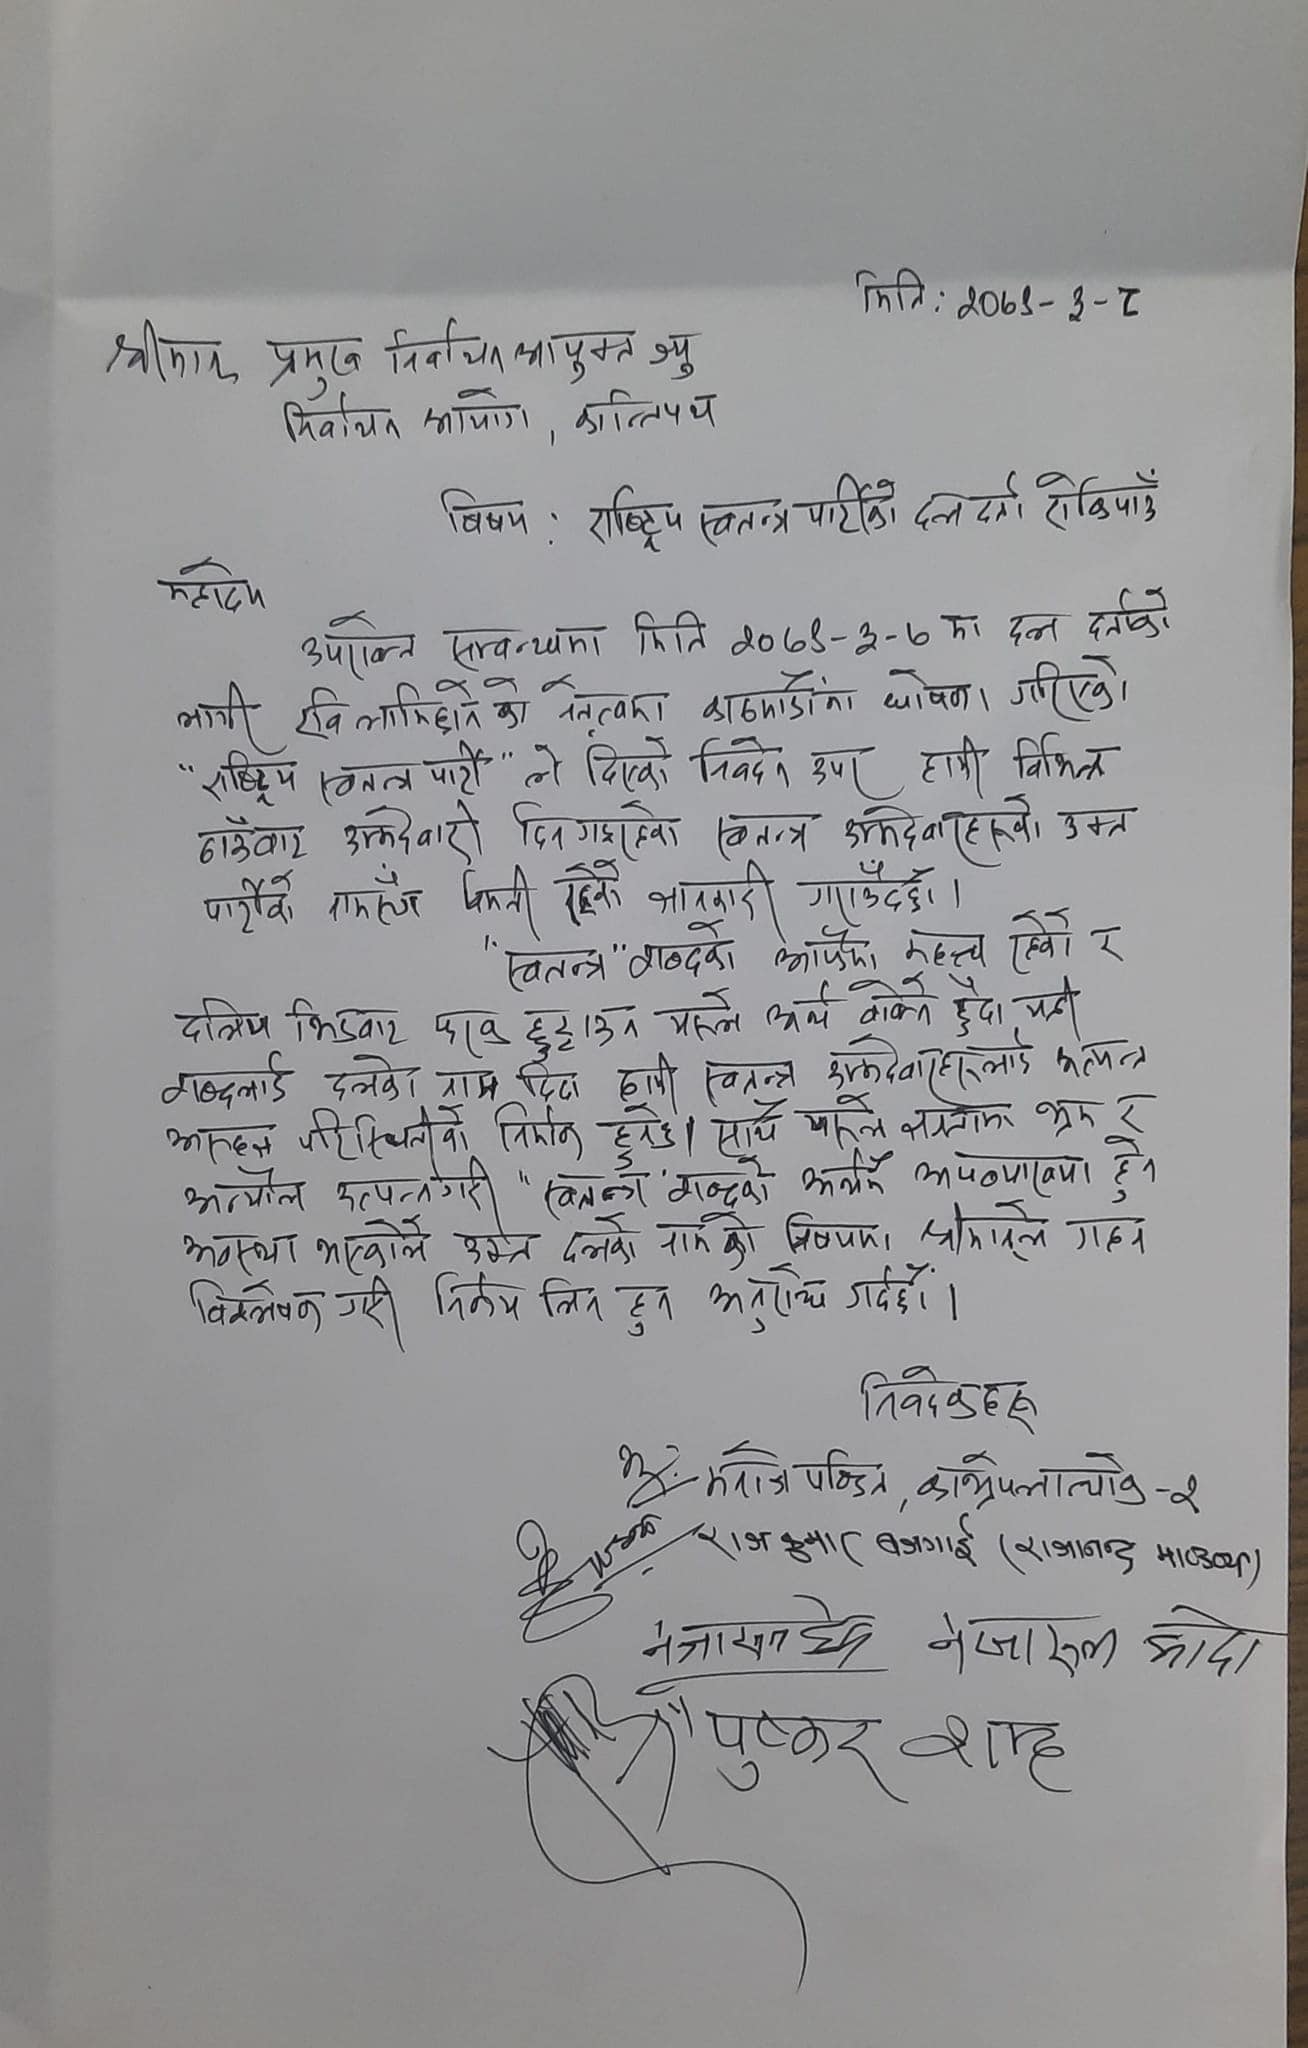 मिति: २०७९-३-८
श्रीमान् प्रमुख निर्वाचन आयुक्त ज्यु
निर्वाचन आयोग, कान्तिपथ
बिषय: राष्ट्रिय स्वतन्त्र पार्टीको दल दर्ता रोकिपाउँ
महोदय
उपरोक्त सम्वन्धमा मिति २०७९-३-७ मा दल दर्ताको
लागी रवि लामिछाने को नेतृत्वमा काठमाडौंमा घोषणा गरिएको
"राष्ट्रिय स्वतन्त्र पार्टी" ले दिएको निवेदन उपर हामी विभिन्न
ठाउँबाट उम्मेदवारी दिन गइरहेका स्वतन्त्र उम्मेदवारहरूको उक्त
पार्टीको नाममाँ रहेको जानकारी गराउँदछौं।
"स्वतन्त्र" शब्दको आफ्नै महत्त्व रहेको र
दलिय भिडबाट फरक छुट्टाउन यसले अर्थ बोक्ने हुँदा यही
शब्दलाई दलको नाम दिंदा हामी स्वतन्त्र उम्मेदवारहरूलाई अत्यन्त
असहज परिस्थितीको निर्माण हुनेछ। साथै यसले जनतामा भ्रम र
अन्यौल उत्पन्न गरी "स्वतन्त्र" शब्दको अर्थनै अपव्याख्या हुने
अवस्था भएकोले उक्त दलको नामको बिषयमा श्रीमानले गहन
विश्लेषण गरी निर्णय लिन हुन अनुरोध गर्दछौं।
निवेदकहरू
मनोज पण्डित, काभ्रेपलाञ्चोक-२
राजकुमार बजगाई (राजानन्द )
पुष्कर शाह